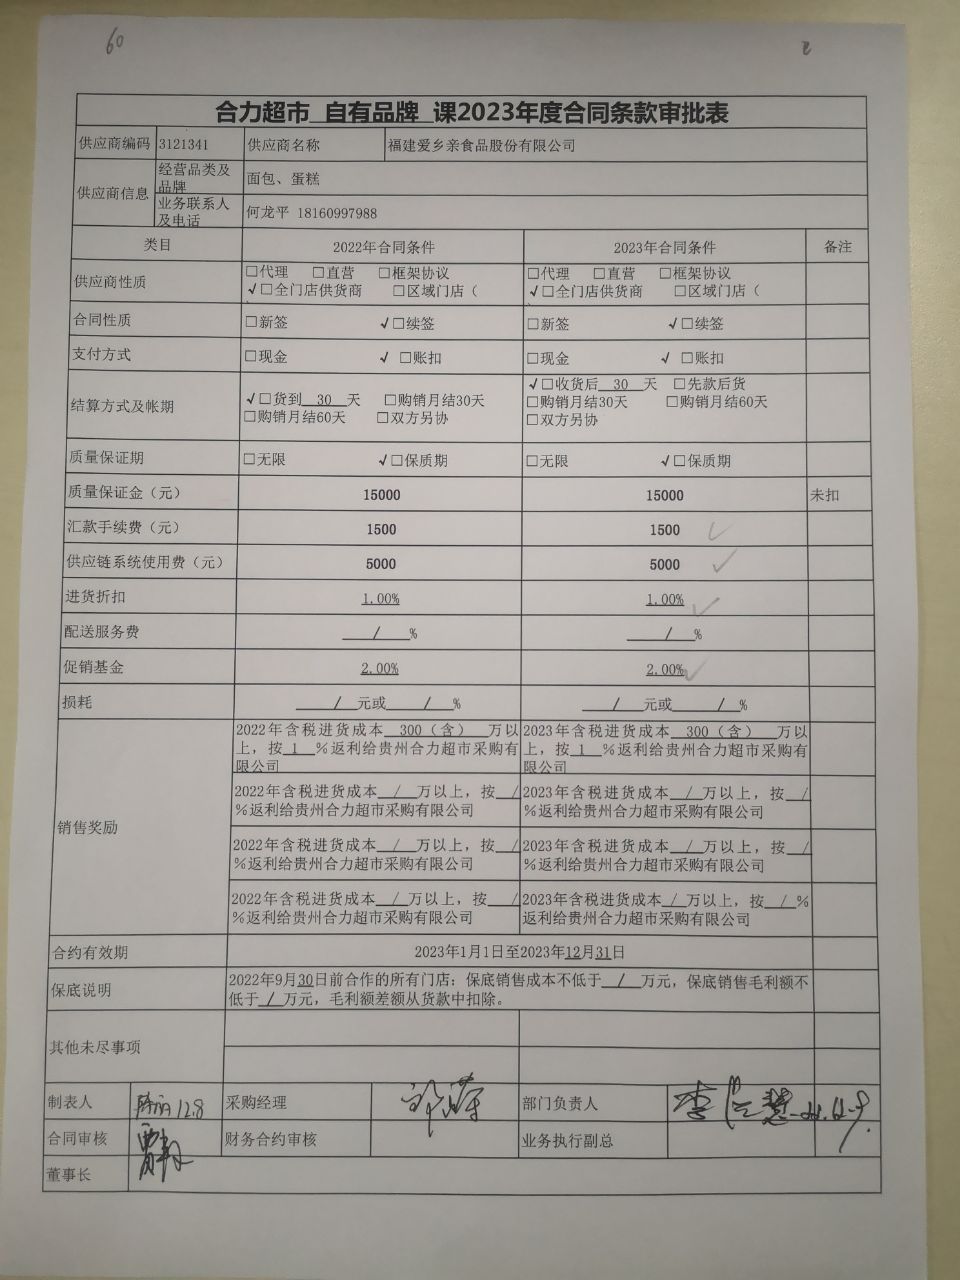 60
合力超市 自有品牌 课2023年度合同条款审批表
供应商编码 3121341 供应商名称 福建爱乡亲食品股份有限公司
供应商信息
经营品类及品牌 面包、蛋糕
业务联系人及电话 何龙平 18160997988
类目 2022年合同条件 2023年合同条件 备注
供应商性质
□代理 □直营 □框架协议
√□全门店供货商 □区域门店（
□代理 □直营 □框架协议
√□全门店供货商 □区域门店（
合同性质 □新签 √□续签 □新签 √□续签
支付方式 □现金 √ □账扣 □现金 √ □账扣
结算方式及帐期
√□货到 30 天 □购销月结30天
□购销月结60天 □双方另协
√□收货后 30 天 □先款后货
□购销月结30天 □购销月结60天
□双方另协
质量保证期 □无限 √□保质期 □无限 √□保质期
质量保证金（元） 15000 15000 未扣
汇款手续费（元） 1500 1500 ✓
供应链系统使用费（元） 5000 5000 ✓
进货折扣 1.00% 1.00% ✓
配送服务费 / % / %
促销基金 2.00% 2.00% ✓
损耗 / 元或 / % / 元或 / %
销售奖励
2022年含税进货成本 300（含） 万以
上，按 1 %返利给贵州合力超市采购有
限公司
2023年含税进货成本 300（含） 万以
上，按 1 %返利给贵州合力超市采购有
限公司
2022年含税进货成本 / 万以上，按 /
%返利给贵州合力超市采购有限公司
2023年含税进货成本 / 万以上，按 /
%返利给贵州合力超市采购有限公司
2022年含税进货成本 / 万以上，按 /
%返利给贵州合力超市采购有限公司
2023年含税进货成本 / 万以上，按 /
%返利给贵州合力超市采购有限公司
2022年含税进货成本 / 万以上，按 /
%返利给贵州合力超市采购有限公司
2023年含税进货成本 / 万以上，按 / %
返利给贵州合力超市采购有限公司
合约有效期 2023年1月1日至2023年12月31日
保底说明
2022年9月30日前合作的所有门店：保底销售成本不低于 / 万元，保底销售毛利额不
低于 / 万元，毛利额差额从货款中扣除。
其他未尽事项
制表人 12.8 采购经理 部门负责人
合同审核 财务合约审核 业务执行副总
董事长